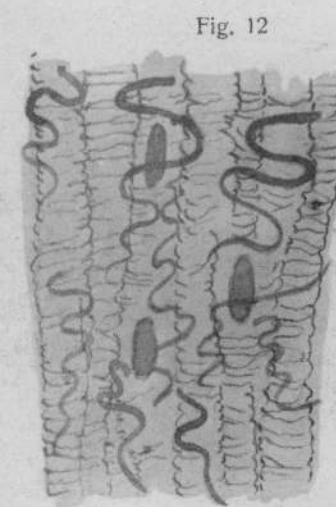 Fig. 12